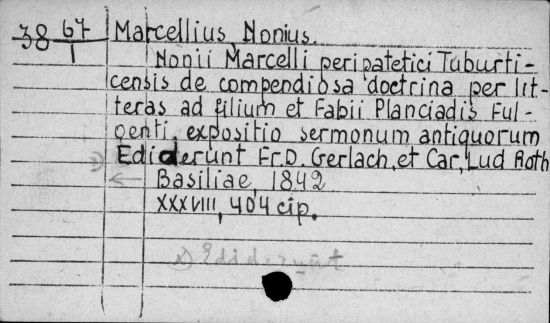 38 67/1 Marcellius, Nonius.
Nonii Marcelli peripatetici Tuburti-
censis de compendiosa doctrina per lit-
teras ad filium et Fabii Planciadis Ful-
genti expositio sermonum antiquorum
Ediderunt Fr.D. Gerlach, et Car. Lud Roth
Basiliae, 1842
XXXVIII, 404 cip.
Ediderunt